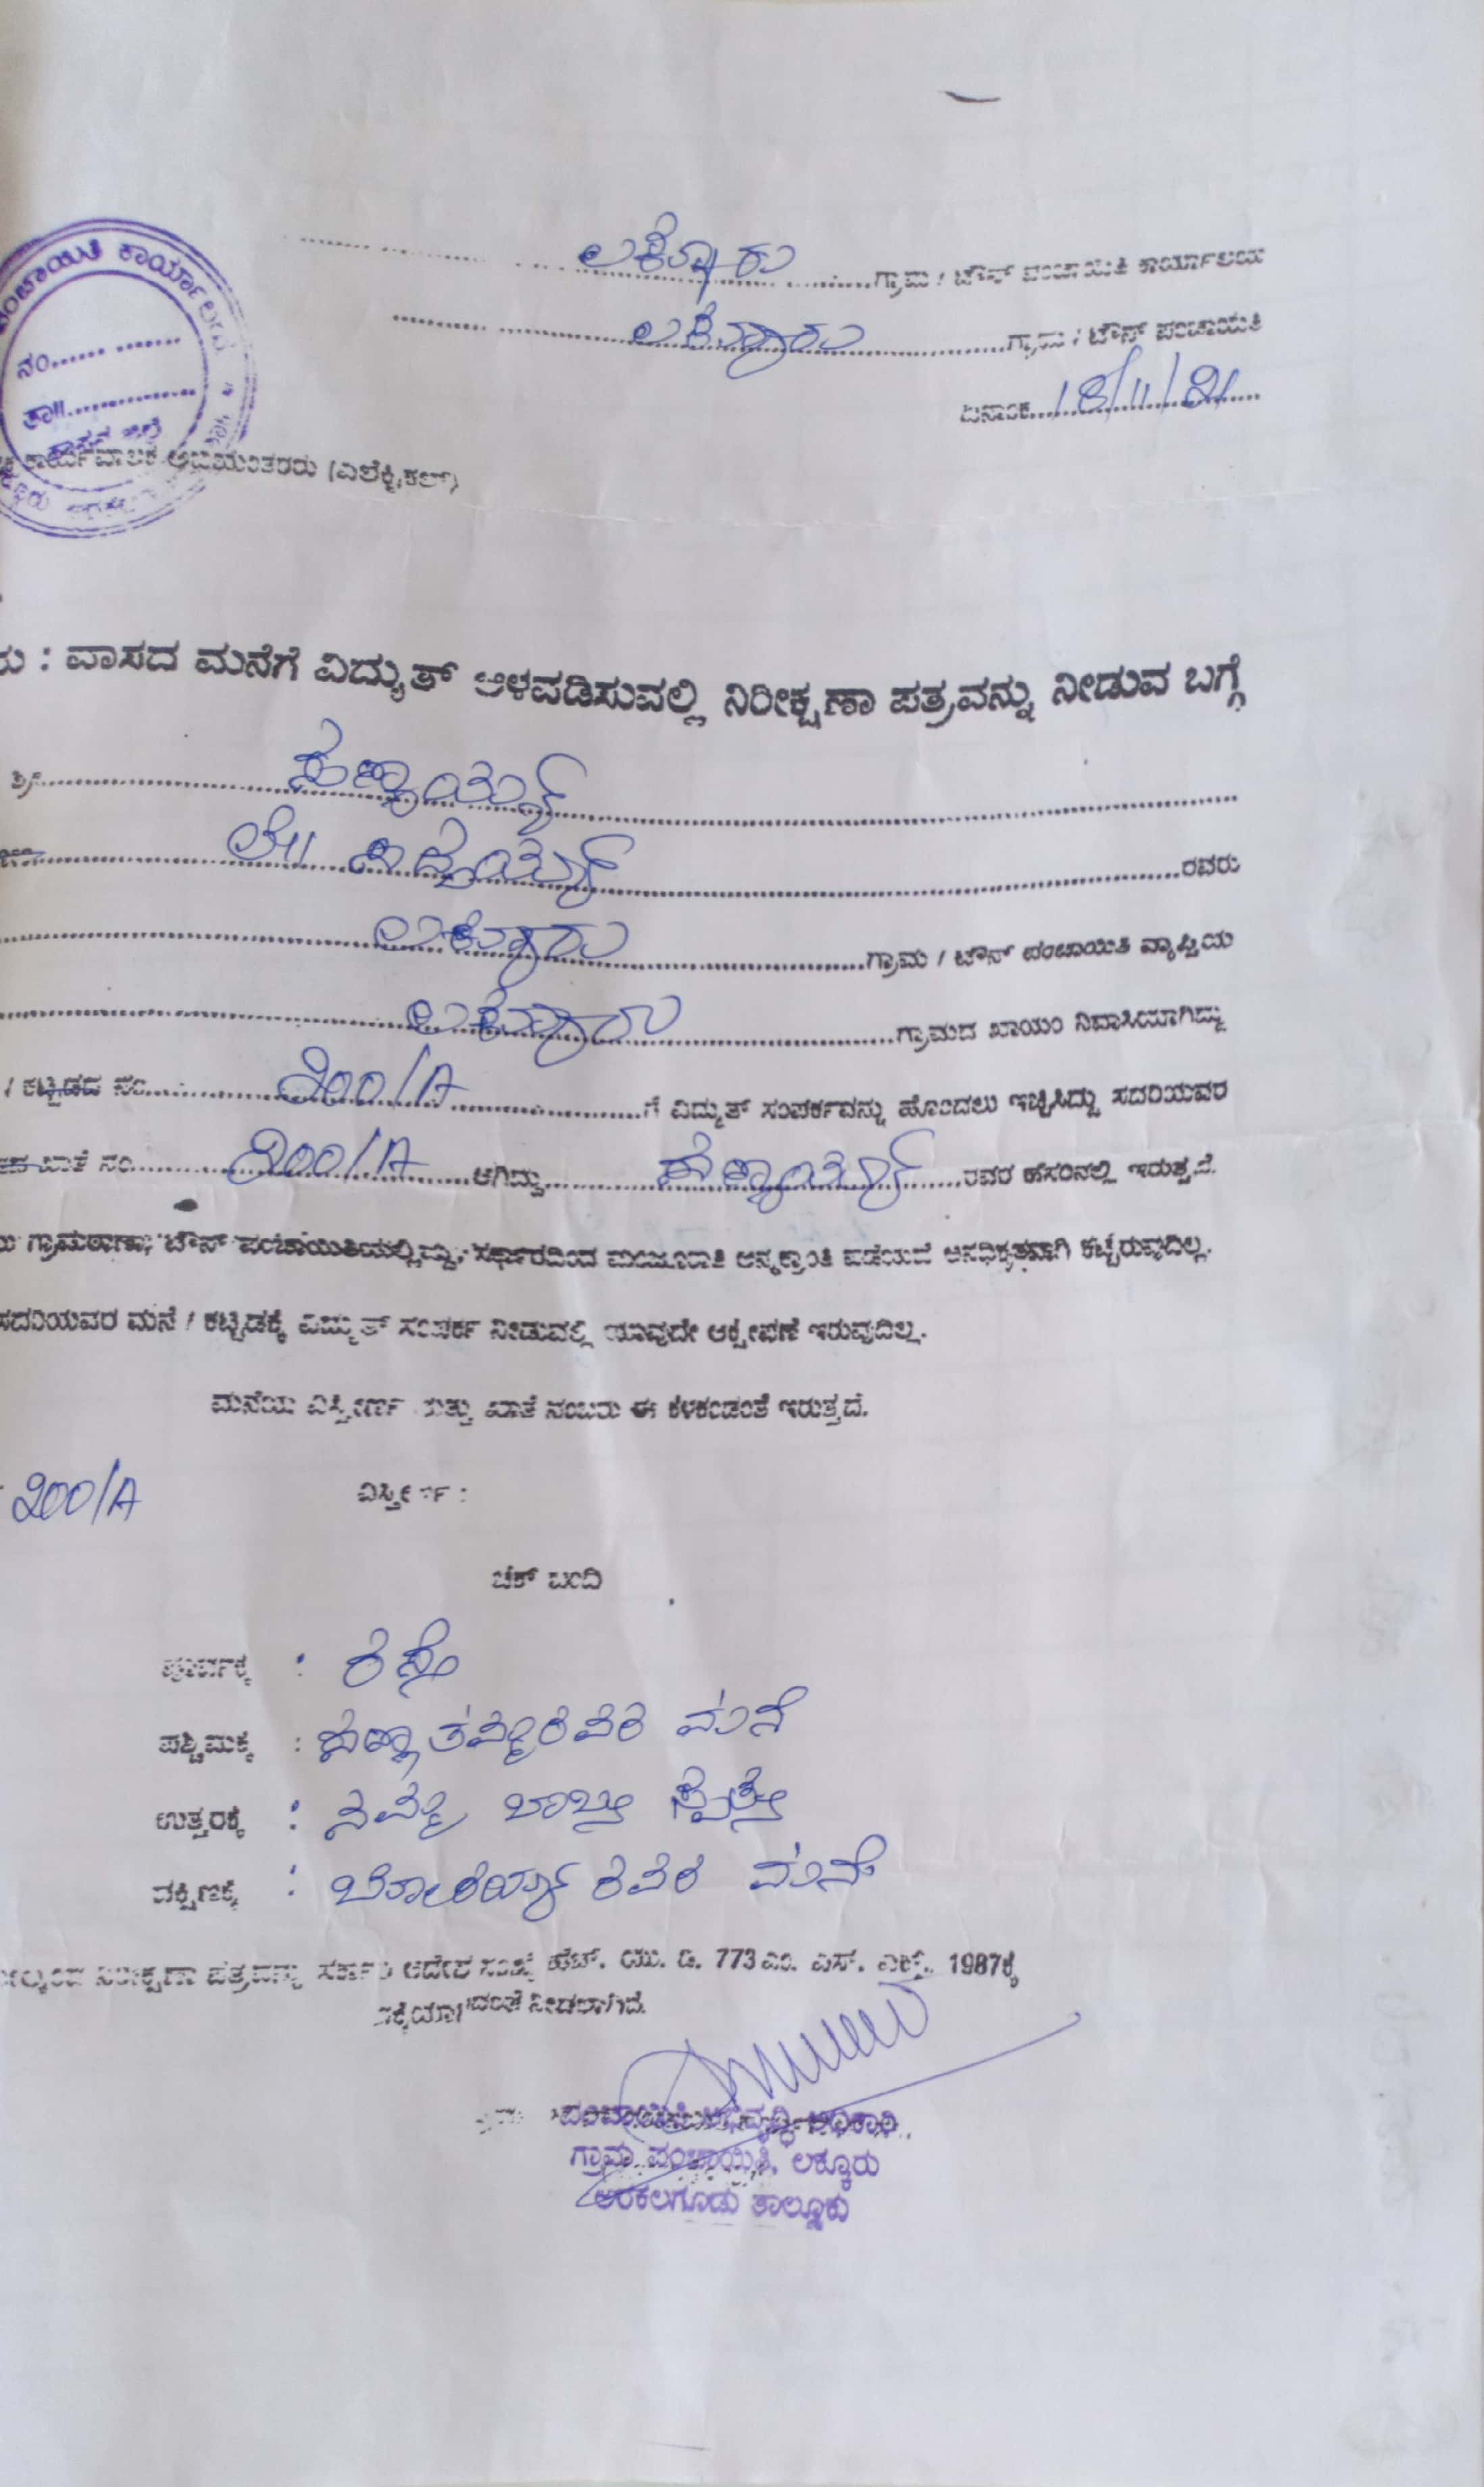 ಪಂಚಾಯಿತಿ ಕಾರ್ಯಾಲಯ
ನಂ............
ತಾ॥..............
ಲಕ್ಕೂರು ಗ್ರಾಮ / ಟೌನ್ ಪಂಚಾಯಿತಿ ಕಾರ್ಯಾಲಯ
ಲಕ್ಕೂರು ಗ್ರಾಮ / ಟೌನ್ ಪಂಚಾಯಿತಿ
ದಿನಾಂಕ 18/11/21
ಕಾರ್ಯಪಾಲಕ ಅಭಿಯಂತರರು (ಎಲೆಕ್ಟ್ರಿಕಲ್)
: ವಾಸದ ಮನೆಗೆ ವಿದ್ಯುತ್ ಅಳವಡಿಸುವಲ್ಲಿ ನಿರೀಕ್ಷಣಾ ಪತ್ರವನ್ನು ನೀಡುವ ಬಗ್ಗೆ
ಶ್ರೀ
ರವರು
ಲಕ್ಕೂರು ಗ್ರಾಮ / ಟೌನ್ ಪಂಚಾಯಿತಿ ವ್ಯಾಪ್ತಿಯ
ಲಕ್ಕೂರು ಗ್ರಾಮದ ಖಾಯಂ ನಿವಾಸಿಯಾಗಿದ್ದು
/ ಕಟ್ಟಡದ ನಂ. 200/A ಗೆ ವಿದ್ಯುತ್ ಸಂಪರ್ಕವನ್ನು ಹೊಂದಲು ಇಚ್ಛಿಸಿದ್ದು ಸದರಿಯವರ
ಖಾತೆ ನಂ. 200/A ಆಗಿದ್ದು ರವರ ಹೆಸರಿನಲ್ಲಿ ಇರುತ್ತದೆ.
ಗ್ರಾಮಠಾಣಾ, ಟೌನ್ ಪಂಚಾಯಿತಿಯಲ್ಲಿದ್ದು, ಸರ್ಕಾರದಿಂದ ಮಂಜೂರಾತಿ ಅನ್ಯಕ್ರಾಂತಿ ಪಡೆಯದೆ ಅನಧಿಕೃತವಾಗಿ ಕಟ್ಟಿರುವುದಿಲ್ಲ.
ಸದರಿಯವರ ಮನೆ / ಕಟ್ಟಡಕ್ಕೆ ವಿದ್ಯುತ್ ಸಂಪರ್ಕ ನೀಡುವಲ್ಲಿ ಯಾವುದೇ ಆಕ್ಷೇಪಣೆ ಇರುವುದಿಲ್ಲ.
ಮನೆಯ ವಿಸ್ತೀರ್ಣ ಮತ್ತು ಖಾತೆ ನಂಬರು ಈ ಕೆಳಕಂಡಂತೆ ಇರುತ್ತದೆ.
200/A ವಿಸ್ತೀರ್ಣ :
ಚಕ್ ಬಂದಿ
ಪೂರ್ವಕ್ಕೆ : ರಸ್ತೆ
ಪಶ್ಚಿಮಕ್ಕೆ : ರವರ ಮನೆ
ಉತ್ತರಕ್ಕೆ : ಬಾಬ್ತು ಸ್ವತ್ತು
ದಕ್ಷಿಣಕ್ಕೆ : ರವರ ಮನೆ
ನಿರೀಕ್ಷಣಾ ಪತ್ರವನ್ನು ಸರ್ಕಾರಿ ಆದೇಶ ಸಂಖ್ಯೆ ಹೆಚ್. ಯು. ಡಿ. 773 ಎಂ. ಎನ್. ಎಕ್ಸ್. 1987ಕ್ಕೆ
ನೀಡಲಾಗಿದೆ.
ಪಂಚಾಯಿತಿ ಅಭಿವೃದ್ಧಿ ಅಧಿಕಾರಿ
ಗ್ರಾಮ ಪಂಚಾಯಿತಿ, ಲಕ್ಕೂರು
ಅರಕಲಗೂಡು ತಾಲ್ಲೂಕು